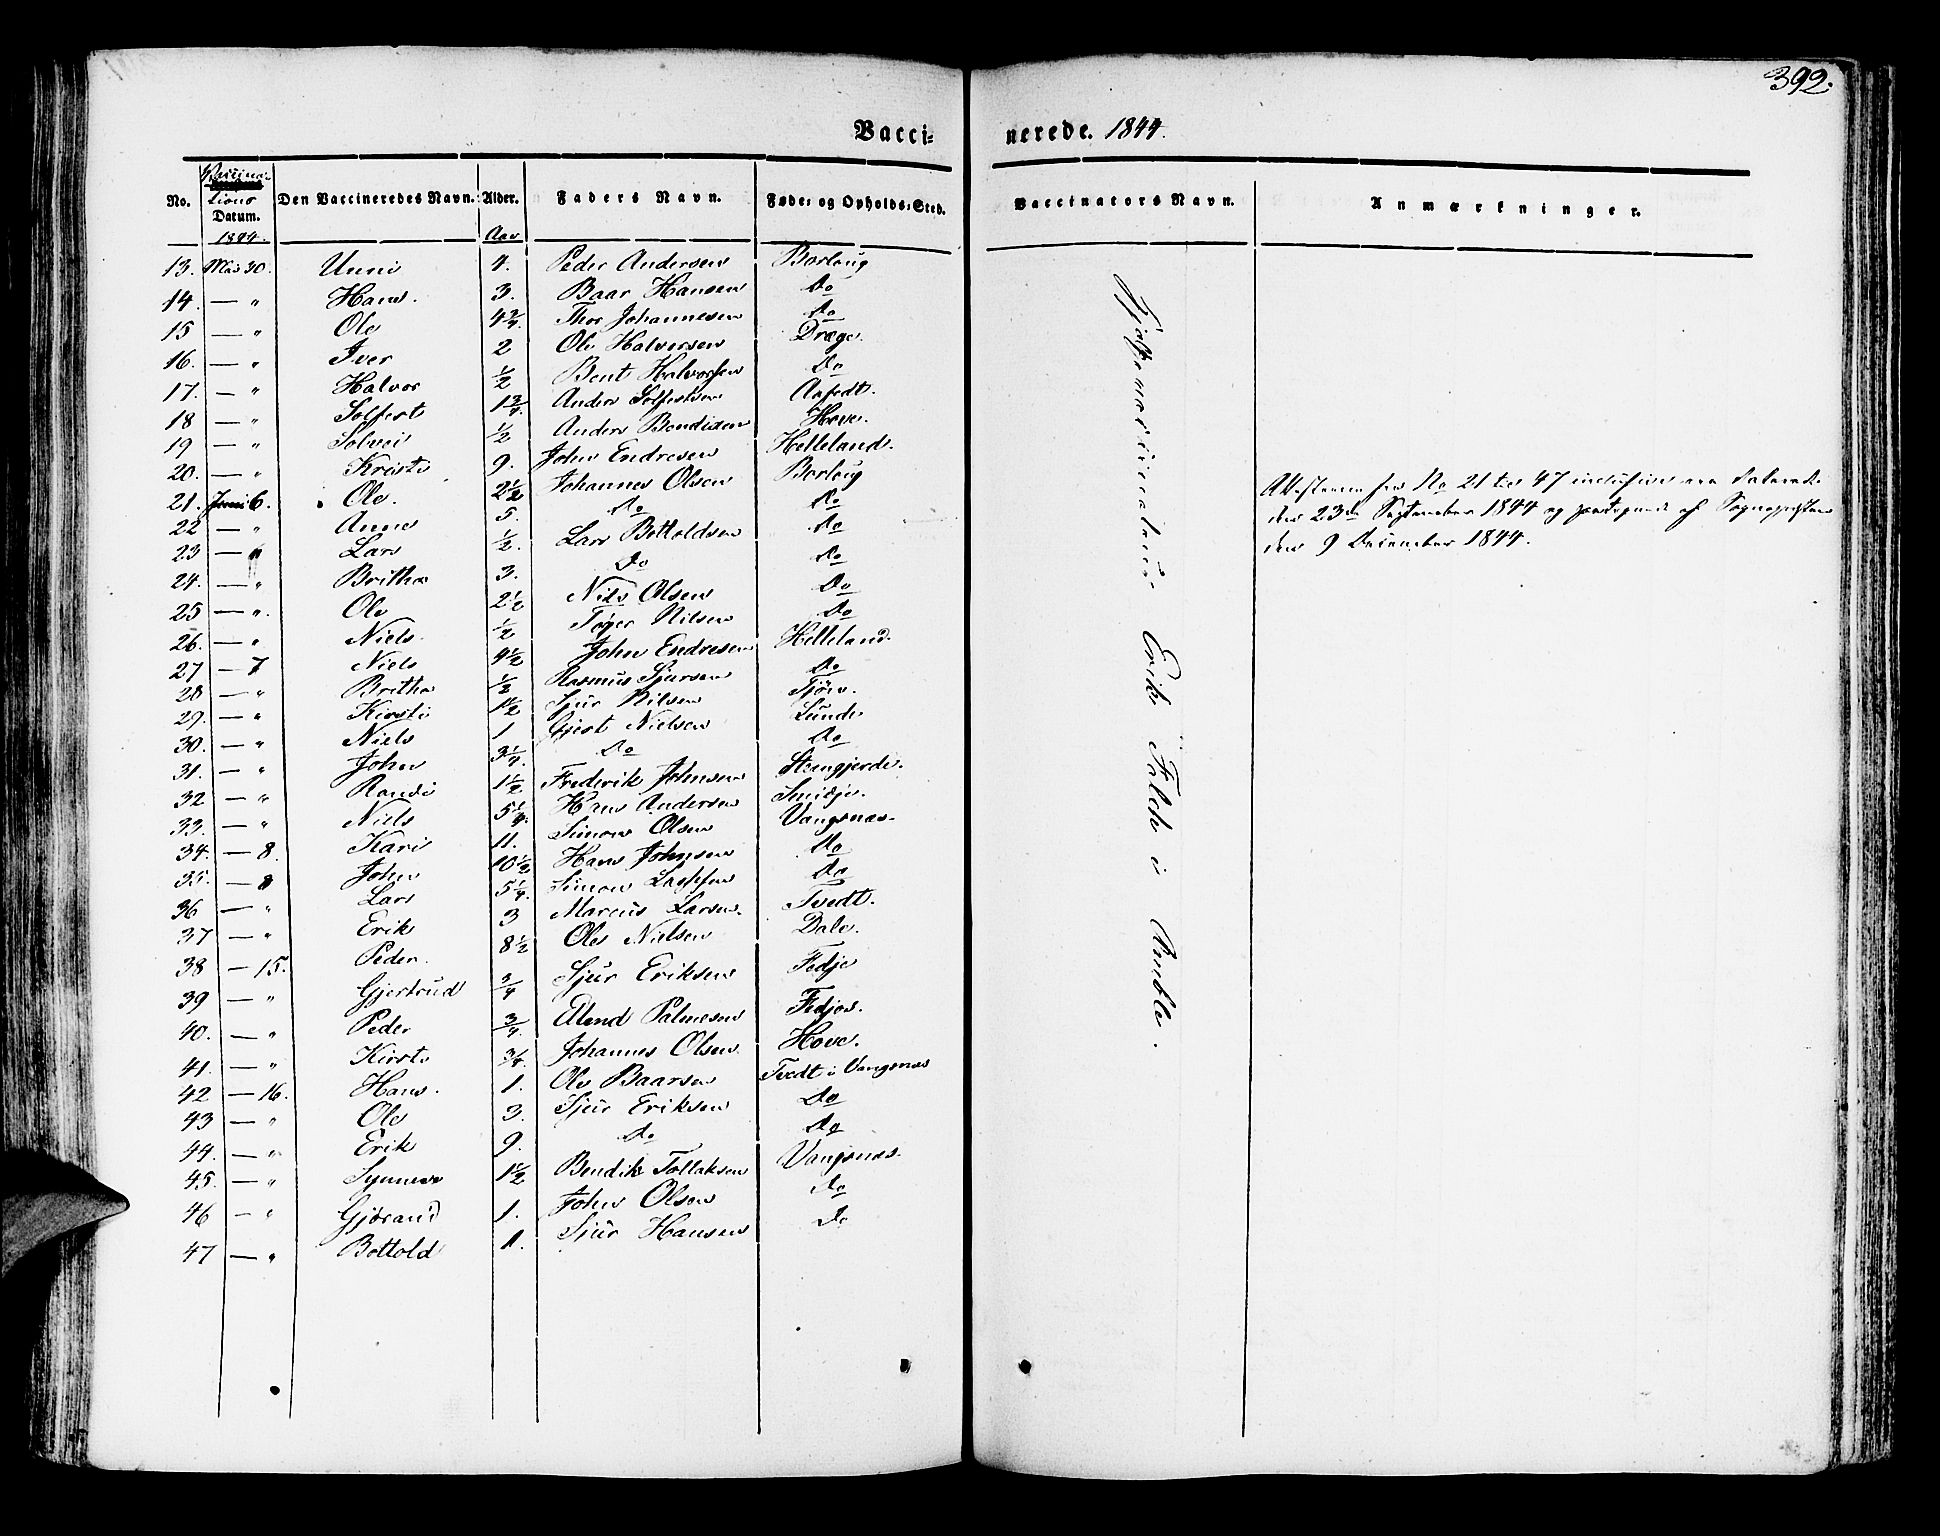 392.
Vacci-nerede. 1844.
No. Vaccinations Datum. 1844. Den Vaccineredes Navn. Alder. Aar Faders Navn. Føde- og Opholds-Sted. Vaccinators Navn. Anmærkninger.
13. Mai 30. Unni 4. Peder Andersen Borlaug
14. — " Hans. 3. Baar Hansen Do
15 — " Ole 4 3/4. Thor Johannesen Do
16. — " Iver 2 Ole Halvorsen Dræge.
17. — " Halvor 1/2 Bent Halvorsen Do
18 — " Solfest 1 3/4. Anders Solfestsen Aafedt.
19 — " Solvei 1/2 Anders Bendixen Hove.
20. — " Kristi 9. John Endresen Helleland.
21. Juni 6. Ole. 2 1/2 Johannes Olsen Borlaug
22 — " Anne 5. Do Do
23 — " Lars 1/2. Lars Bottoldsen Do
24. — " Britha 3. Do Do
25 — ". Ole 2 1/2 Nils Olsen Do
26. — " Niels. 1/2 Tøger Nilsen Do
27 — 7 Niels 4 1/2 John Endresen Helleland.
28 — " Britha 1/2 Rasmus Sjursen Do
29. — " Kirsti 1 1/2 Sjur Nilsen Tjøen.
30. — " Niels 1 Gjest Nielsen Lunde
31. — " John 3 1/4. Do Do
32 — " Randi 1 1/2 Frederik Johnsen Steengjerde.
33. — " Niels 5 1/4. Hans Andersen Smidje.
34. — 8. Kari 11. Simon Olsen Vangsnæs.
35. — 8 John 10 1/2 Hans Johnsen Do
36 — " Lars 5 1/4. Simon Lassesen Do
37 — " Erik 3 Marcus Larsen. Tvedt.
38 — 15. Peder. 8 1/2 Ole Nielsen Dale.
39 — " Gjertrud 3/4 Sjur Eriksen Fedje
40. — " Peder 3/4. Elend Palmesen Fedjos.
41. — " Kirsti 3/4. Johannes Olsen. Hove.
42 — 16. Hans. 1. Ole Baarsen Tvedt i Vangsnæs
43 — " Ole 3. Sjur Eriksen Do
44. — " Erik 9. Do Do
45. — " Synneve 1 1/2 Bendik Tollaksen Vangsnæs.
46 — " Gjørand 1. John Olsen Do
47 — " Bottold 1. Sjur Hansen Do
Hjelpevaccinateur Erik Falede i Amble.
Attesterne fra No 21 til 47 inclusive ere daterede
den 23de September 1844 og paategnede af Sognepresten
den 9 December 1844.